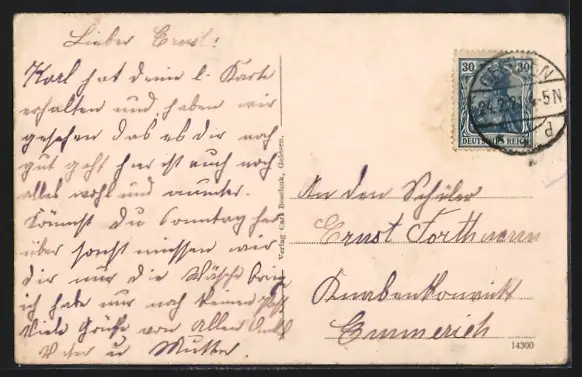 Lieber Ernst!
Karl hat deine l. Karte
erhalten und haben wir
gesehen das es dir noch
gut geht hier ist auch noch
alles wohl und munter.
Kommst du Sonntag her
über sonst müssen wir
dir nur die Wäsche
ich habe nur noch keine
Viele Grüße von Allen
Vater u Mutter.
Verlag Carl Geldern.
30 30
DEUTSCHES REICH
GELDERN
4-5N
d
An den Schüler
Ernst Forthmann
Knabenkonvikt
Emmerich
14300